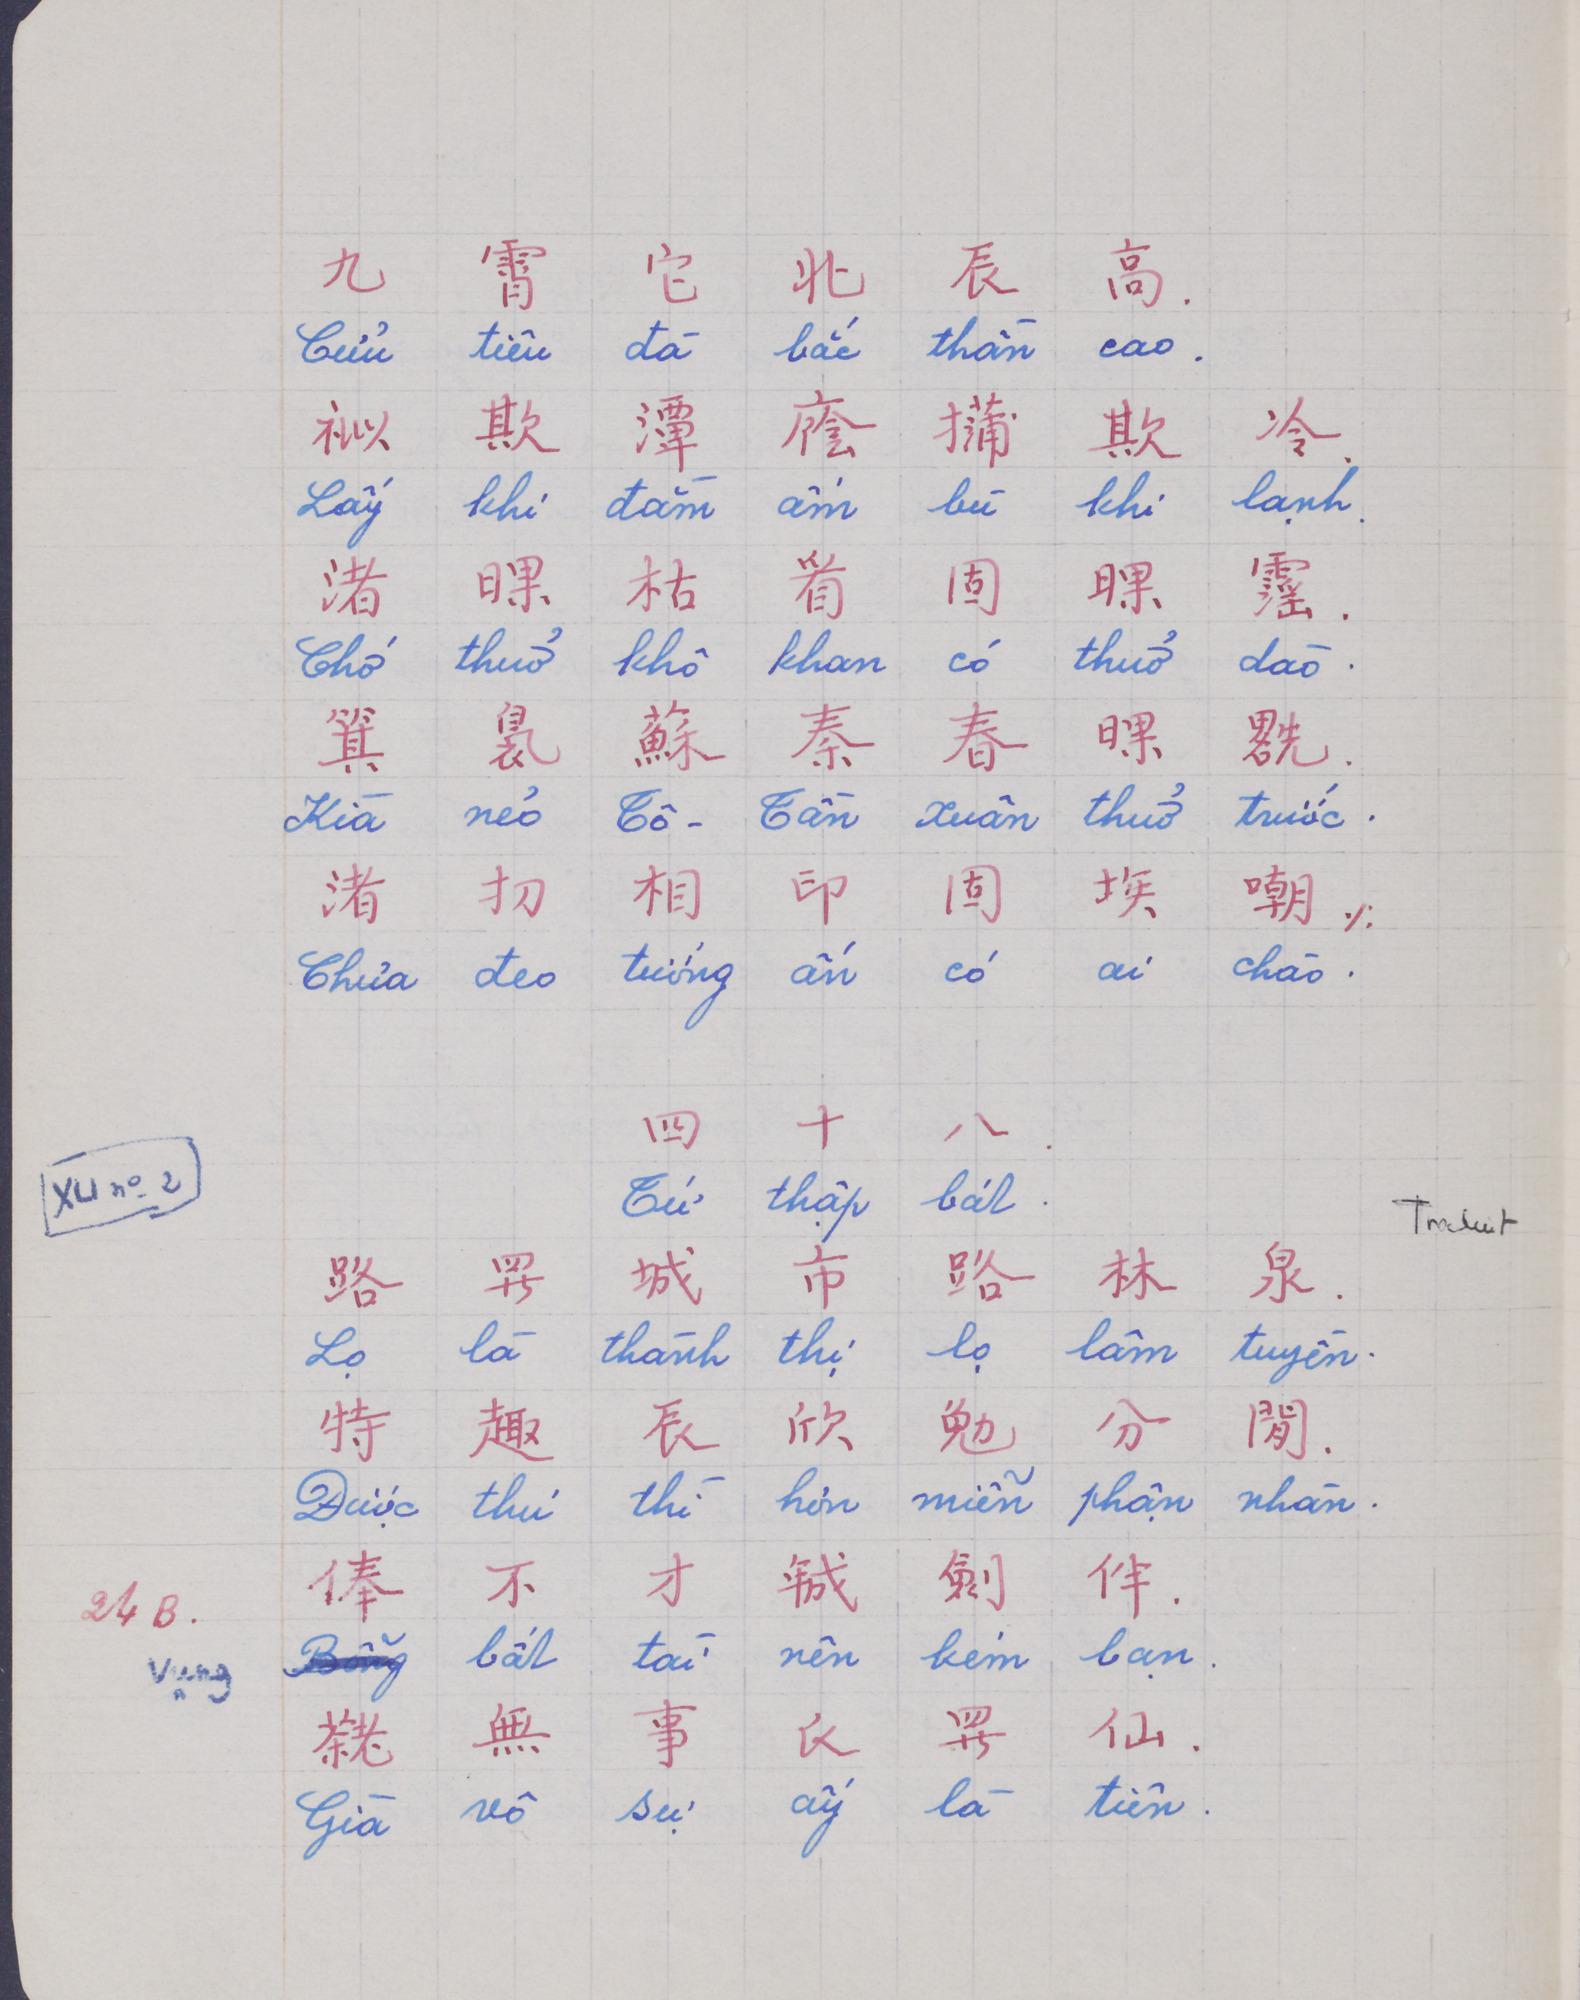 九 霄 它 北 辰 高.
Cửu tiêu đà bắc thần cao.
𥙩 欺 潭 廕 欺 冷.
Lấy khi đầm ấm bù khi lạnh.
渚 𣇞 枯 固 𣇞
Chớ thuở khô khan có thuở dào.
箕 裊 蘇 秦 春 𣇞 𠠩.
Kìa nẻo Tô-Tần xuân thuở trước.
渚 扨 相 印 固 埃 嘲
Chưa đeo tướng ấn có ai chào.
四 十 八.
Tứ thập bát.
XLI nº 2
Traduit
路 羅 城 市 路 林 泉.
Lọ là thành thị lọ lâm tuyền.
特 趣 辰 欣 勉 分 閒.
Được thú thì hơn miễn phận nhàn.
俸 不 才 𢧚 劍 伴.
24 B.
Bổng bất tài nên kém bạn.
Vụng
無 事 氏 羅 仙.
Già vô sự ấy là tiên.